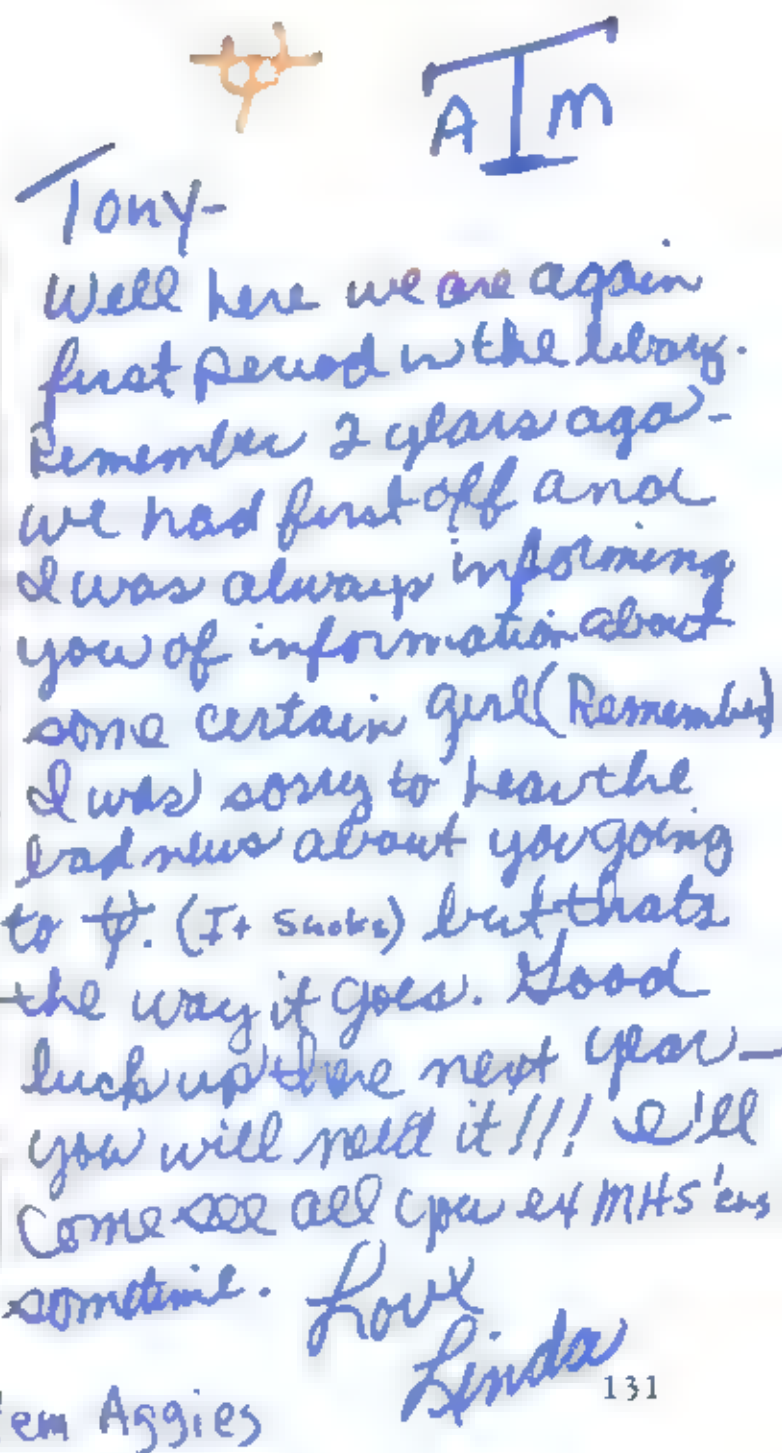 ATM
Tony-
Well here we are again
first period in the library.
Remember 2 years ago-
we had first off and
I was always informing
you of information about
some certain girl (Remember)
I was sorry to hear the
bad news about you going
to t.u. (It sucks) but thats
the way it goes. Good
luck up there next year—
you will need it!!! I'll
come see all you ex MHS'ers
sometime. Love
Linda
'em Aggies
131